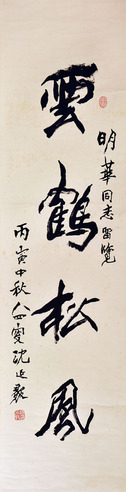 雲鶴松風
明華同志留覽
丙寅中秋八四叟沈延毅